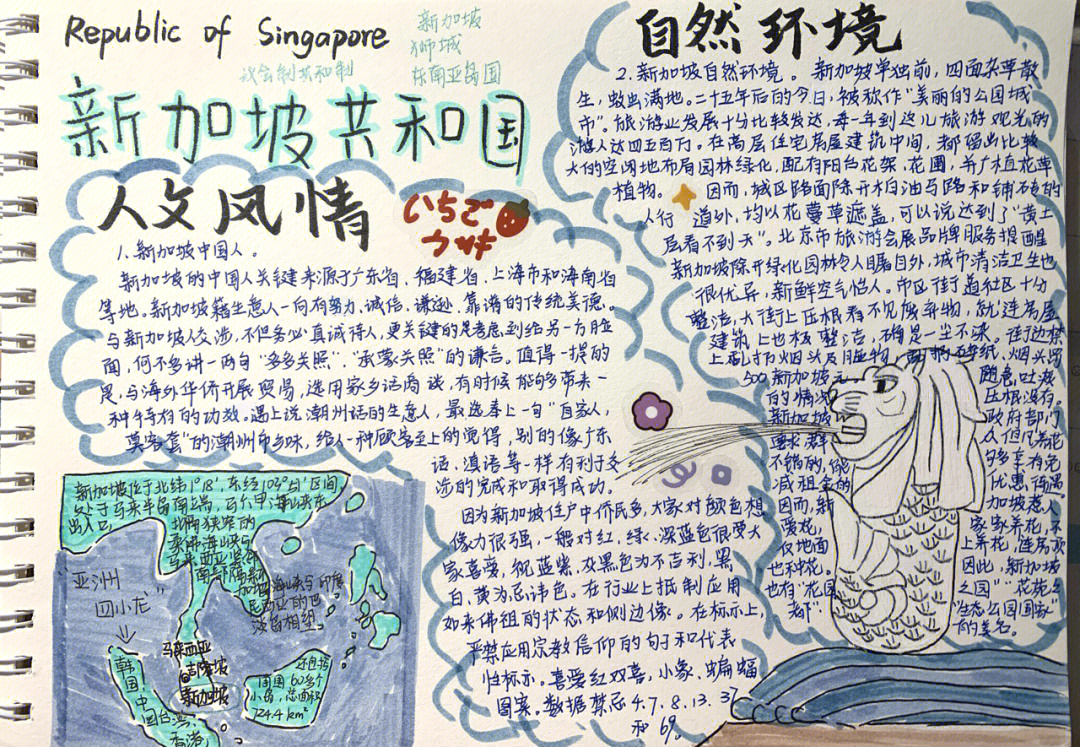 Republic of Singapore
新加坡
狮城
东南亚岛国
议会制共和制
新加坡共和国
人文风情
いちご
1.新加坡中国人。
新加坡的中国人关键来源于广东省、福建省、上海市和海南省
等地。新加坡籍生意人一向有努力、诚信、谦逊、靠谱的传统美德。
与新加坡人交涉,不但务必真诚待人,更关键的是考虑到给另一方脸
面,何不多讲一两句“多多关照”、“承蒙关照”的谦言。值得一提的
是,与海外华侨开展贸易,选用家乡话商谈,有时候能够多带来一
种特有的功效。遇上说潮州话的生意人,最选奉上一句“自家人,
莫客套”的潮州市乡味,给人一种顾客至上的觉得,别的像广东
话、滇语等一样有利于交
流的完成和取得成功。
因为新加坡住户中侨民多,大家对颜色想
像力很强,一般对红、绿、深蓝色很受大
家喜爱,视蓝紫、灰黑色为不吉利,黑
白、黄为忌讳色。在行业上抵制应用
如来佛祖的状态和侧边像。在标示上,
严禁应用宗教信仰的句子和代表
性标示。喜爱红双喜,小象、蝙蝠
图案。数据禁忌4.7.8.13.37
和69。
新加坡位于北纬1°18′,东经103°51′区间
处于马来半岛南端,马六甲海峡东
出入口,
北隔狭窄的
柔佛海峡与
马来西亚紧邻
南部隔新
加坡海峡与印度
尼西亚的巴
淡岛相望
亚洲
四小龙
韩
国,中
国台湾,
香港,
马来西亚
吉隆坡
新加坡
还包括
周围60多个
小岛,总面积
724.4km²
自然环境
2.新加坡自然环境。新加坡单独前,四面杂草散
生,蚊虫满地。二十五年后的今日,被称作“美丽的公园城
市”。旅游业发展十分比较发达,每一年到这儿旅游观光的
游人达四五百万。在高层住宅房屋建筑中间,都留出比较
大的空闲地布局园林绿化,配有阳台花架、花圃,并广植花草
植物。因而,城区路面除开水泊油马路和铺不老的
人行道外,均以花蔓草遮盖,可以说达到了“黄土
层看不到天”。北京市旅游会展品牌服务提醒
新加坡除开绿化园林令人瞩目外,城市清洁卫生也
很优异,新鲜空气怡人。市区街道社区十分
整洁,大街上压根看不见废弃物,就连房屋
建筑上也极整洁,确是一尘不染。街边禁
上乱扔烟头及脏物,
碎纸、烟头罚
500新加坡元
随意吐痰
的情况
压根没有。
新加坡
政府部门
要求群
众但凡养花
不错的,能
够多享有免
减租金的
优惠,待遇
因而,新
加坡惹人
爱花,
家家养花,不
仅地面
上养花,连房顶
也种花。
因此,新加坡
也有“花园
之国”“花苑之
都”
“生态公园国家”
的美名。